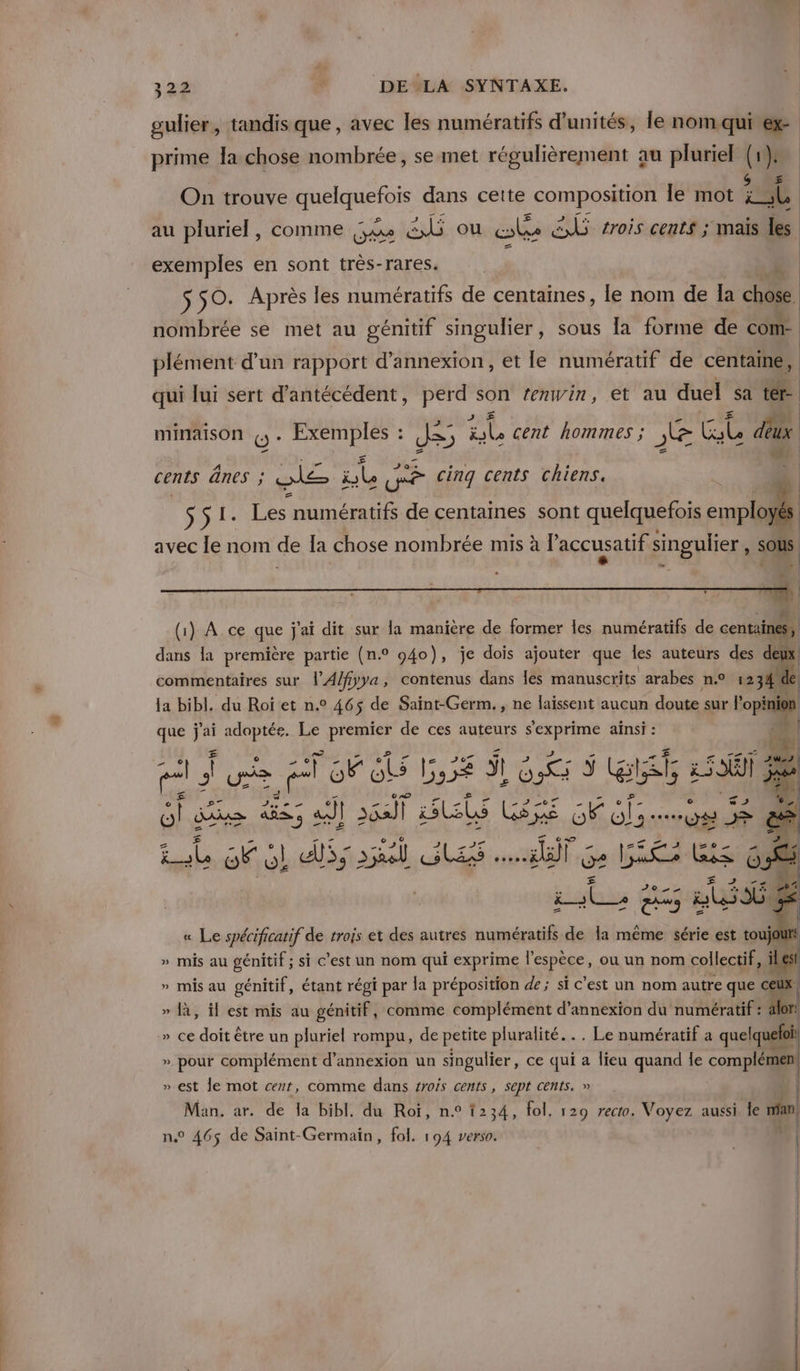 322 DE LA SYNTAXE.
gulier, tandis que, avec les numératifs d'unités, le nom qui ex-
prime la chose nombrée, se met régulièrement au pluriel (1).
On trouve quelquefois dans cette composition le mot مِايَةٌ
au pluriel, comme ثَلَثُ مِئِينَ ou ثَلَثُ مِئَاتٍ trois cents ; mais les
exemples en sont très-rares.
550. Après les numératifs de centaines, le nom de la chose
nombrée se met au génitif singulier, sous la forme de com-
plément d'un rapport d'annexion, et le numératif de centaine,
qui lui sert d'antécédent, perd son tenwin, et au duel sa ter-
minaison نِ. Exemples : مِايَةُ رَجُلٍ cent hommes ; مِايَتَا حِمَارٍ deux
cents ânes ; خَمْسُ مِايَةِ كَلْبٍ cinq cents chiens.
551. Les numératifs de centaines sont quelquefois employés
avec le nom de la chose nombrée mis à l'accusatif singulier, sous
(1) A ce que j'ai dit sur la manière de former les numératifs de centaines,
dans la première partie (n.º 940), je dois ajouter que les auteurs des deux
commentaires sur l'Alfiyya, contenus dans les manuscrits arabes n.º 1234 de
la bibl. du Roi et n.º 465 de Saint-Germ., ne laissent aucun doute sur l'opinion
que j'ai adoptée. Le premier de ces auteurs s'exprime ainsi :
مميز الثلاثة واخواتها لا يكون الا مجرورا فان كان اسم جنس او اسم
جمع جر بمن......وان كان غيرهما فباضافة العدد اليه وحقه حينئذ ان
يكون جمعا مكسرا من القلة.....فيضاف للمفرد وذلك ان كان ماية
نحو ثلاثماية وسبع ماية
« Le spécificatif de trois et des autres numératifs de la même série est toujours
» mis au génitif ; si c'est un nom qui exprime l'espèce, ou un nom collectif, il est
» mis au génitif, étant régi par la préposition de ; si c'est un nom autre que ceux
» là, il est mis au génitif, comme complément d'annexion du numératif : alors
» ce doit être un pluriel rompu, de petite pluralité... Le numératif a quelquefois
» pour complément d'annexion un singulier, ce qui a lieu quand le complément
» est le mot cent, comme dans trois cents, sept cents. »
Man. ar. de la bibl. du Roi, n.º 1234, fol. 129 recto. Voyez aussi le man.
n.º 465 de Saint-Germain, fol. 194 verso.